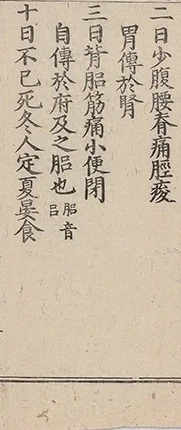 二日少腹腰脊痛脛痠
胃傳於腎
三日背䏚筋痛小便閉
自傳於府及之䏚也䏚音吕
十日不已死冬人定夏晏食